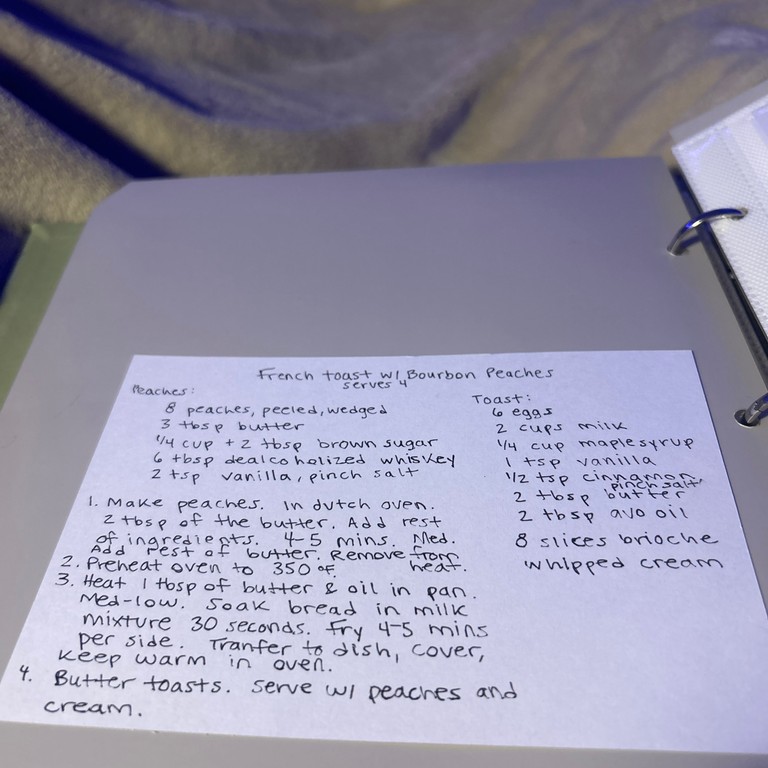 French toast w/ Bourbon Peaches
serves 4
Peaches:
8 peaches, peeled, wedged
3 tbsp butter
1/4 cup + 2 tbsp brown sugar
6 tbsp dealcoholized whiskey
2 tsp vanilla, pinch salt
Toast:
6 eggs
2 cups milk
1/4 cup maple syrup
1 tsp vanilla
1/2 tsp cinnamon,
pinch salt
2 tbsp butter
2 tbsp avo oil
8 slices brioche
whipped cream
1. Make peaches. In dutch oven.
2 tbsp of the butter. Add rest
of ingredients. 4-5 mins. Med.
Add rest of butter. Remove from
heat.
2. Preheat oven to 350 °F.
3. Heat 1 tbsp of butter & oil in pan.
Med-low. Soak bread in milk
mixture 30 seconds. Fry 4-5 mins
per side. Tranfer to dish, cover,
keep warm in oven.
4. Butter toasts. Serve w/ peaches and
cream.